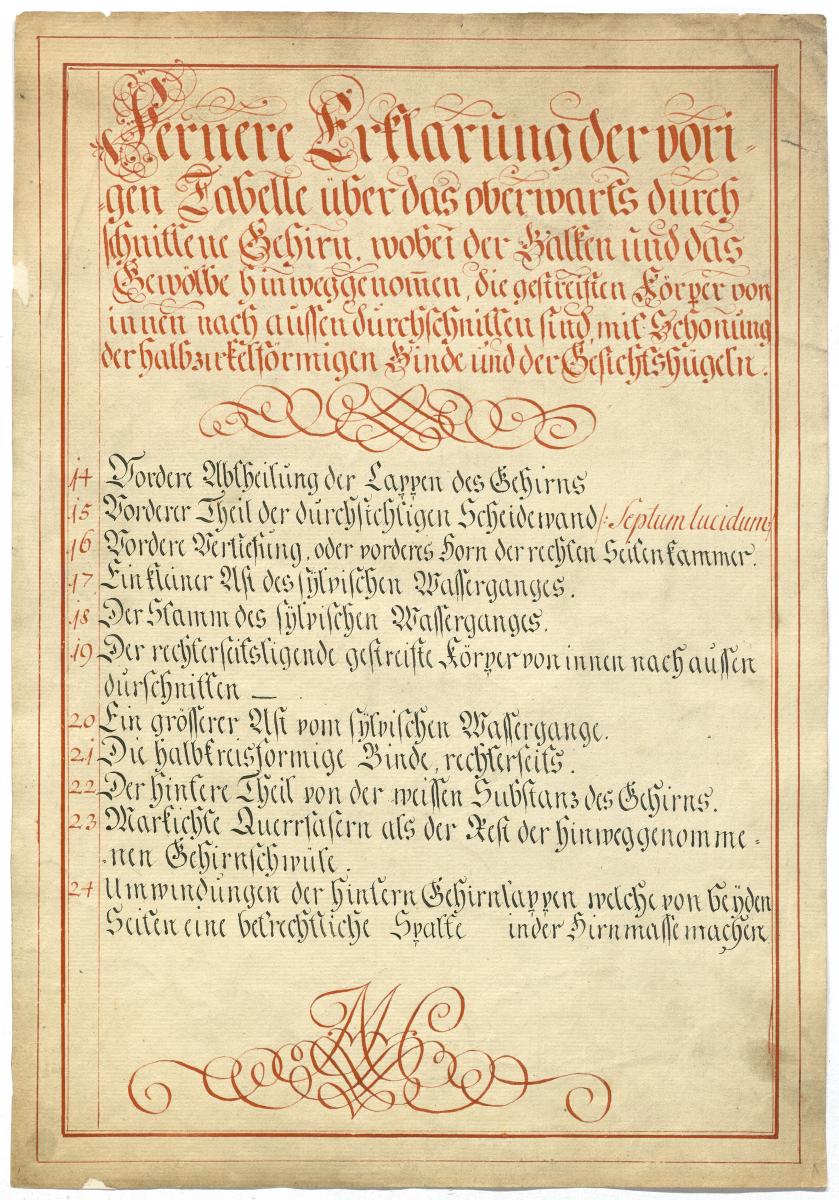 Fernere Erklärung der vori-
gen Tabelle über das oberwärts durch
schnittene Gehirn, wobei der Balken und das
Gewölbe hinweggenom̅en, die gestreiften Körper von
innen nach aussen durchschnitten sind, mit Schonung
der halbzirkelförmigen Binde und der Gesichtshügeln.
14 Vordere Abtheilung der Lappen des Gehirns
15 Vorderer Theil der durchsichtigen Scheidewand /: Septum lucidum :/
16 Vordere Vertiefung, oder vorderes Horn der rechten Seitenkammer.
17. Ein kleiner Ast des sÿlvischen Wasserganges.
18 Der Stamm des sÿlvischen Wasserganges.
19 Der rechterseitsligende gestreifte Körper von innen nach aussen
durschnitten —
20 Ein grösserer Ast vom sÿlvischen Wassergange.
21 Die halbkreisförmige Binde, rechterseits.
22 Der hintere Theil von der weissen Substanz des Gehirns.
23 Markichte Querrfasern als der Rest der hinweggenomme-
nen Gehirnschwüle.
24 Umwindungen der hintern Gehirnlappen welche von beÿden
Seiten eine betrechtliche Spalte in der Hirnmasse machen
M